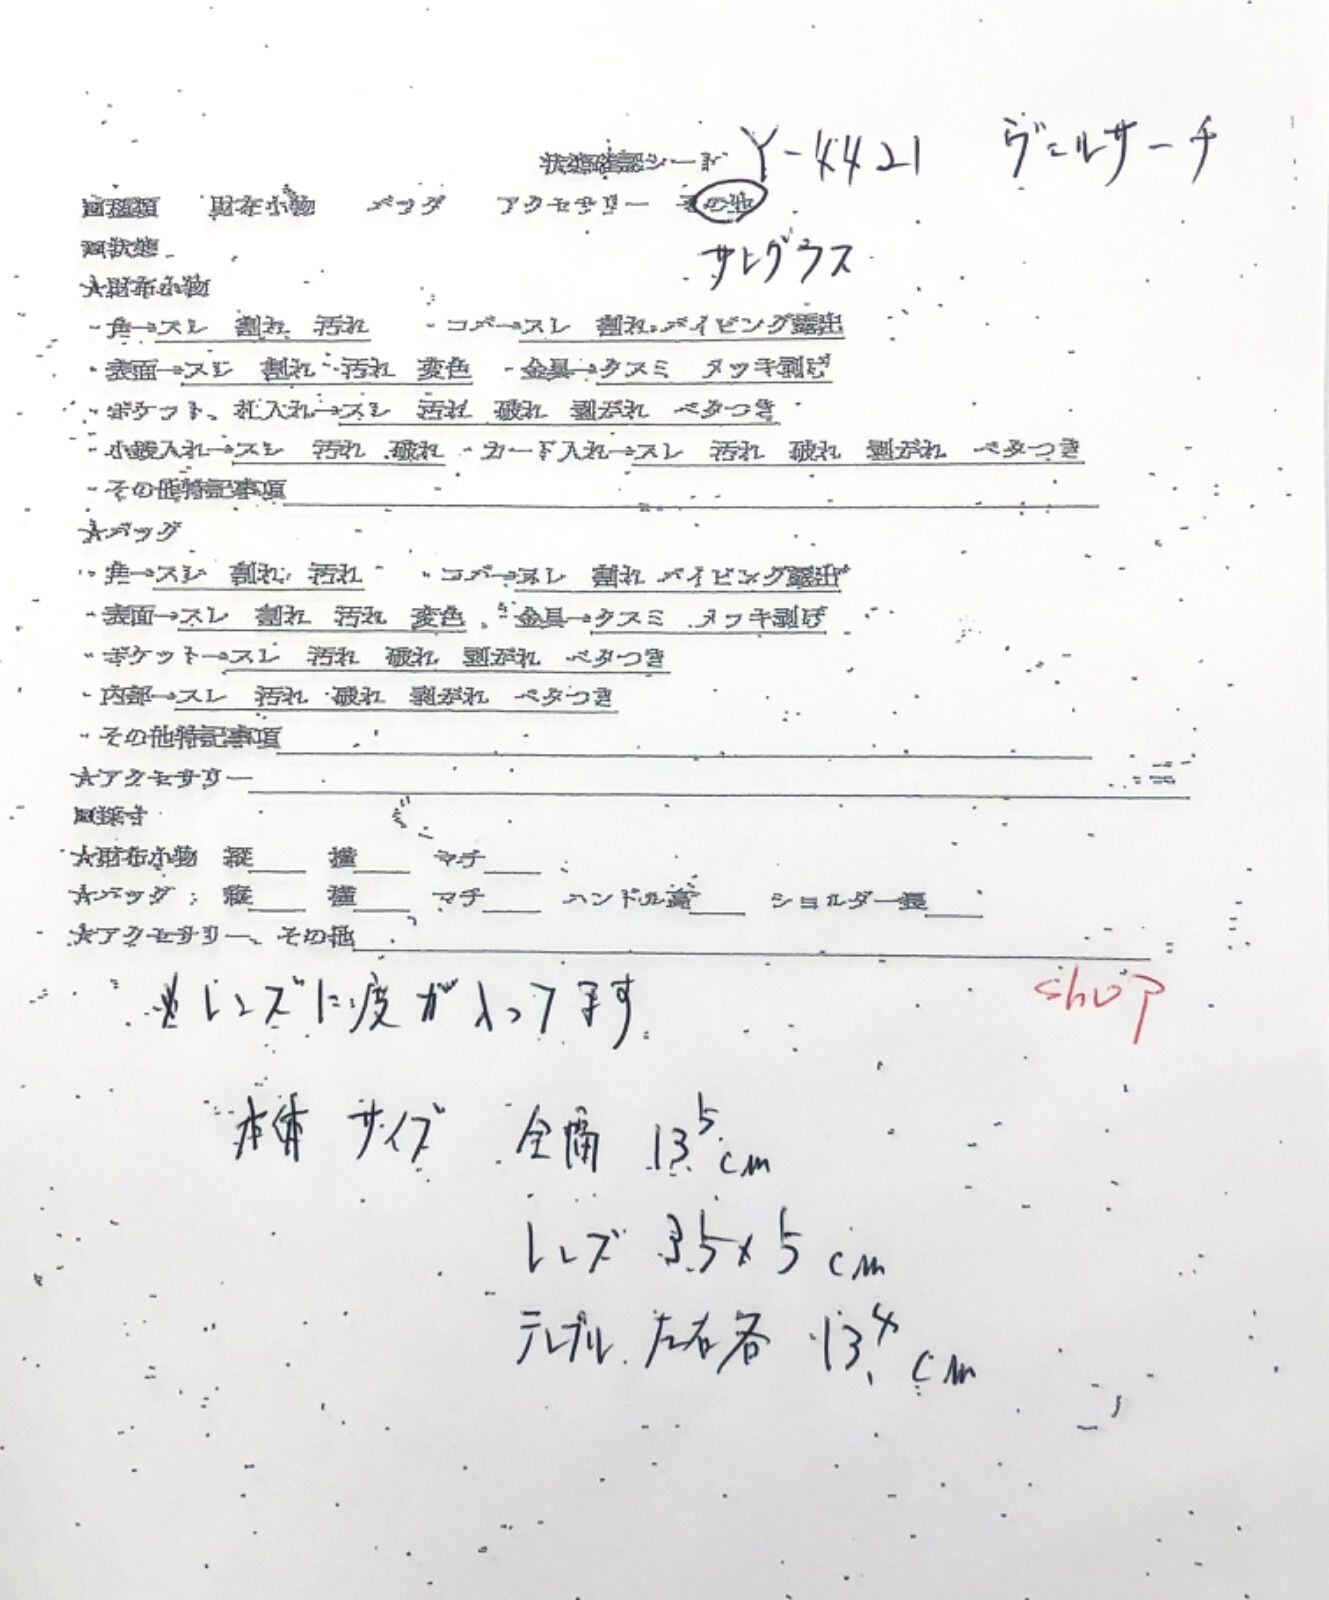 状態確認シート Y-4421 ヴェルサーチ
■種類 財布小物 バッグ アクセサリー その他
サングラス
■状態
★財布小物
・角→スレ 割れ 汚れ ・コバ→スレ 割れ パイピング露出
・表面→スレ 割れ 汚れ 変色 ・金具→クスミ メッキ剥げ
・ポケット、札入れ→スレ 汚れ 破れ 剥がれ ベタつき
・小銭入れ→スレ 汚れ 破れ ・カード入れ→スレ 汚れ 破れ 剥がれ ベタつき
・その他特記事項
★バッグ
・角→スレ 割れ 汚れ ・コバ→スレ 割れ パイピング露出
・表面→スレ 割れ 汚れ 変色 ・金具→クスミ メッキ剥げ
・ポケット→スレ 汚れ 破れ 剥がれ ベタつき
・内部→スレ 汚れ 破れ 剥がれ ベタつき
・その他特記事項
★アクセサリー
■採寸
★財布小物 縦 横 マチ
★バッグ 縦 横 マチ ハンドル高 ショルダー長
★アクセサリー、その他
shop
※レンズに度が入ってます
本体 サイズ 全幅 13.5cm
レンズ 3.5×5cm
テンプル 左右各 13.4cm